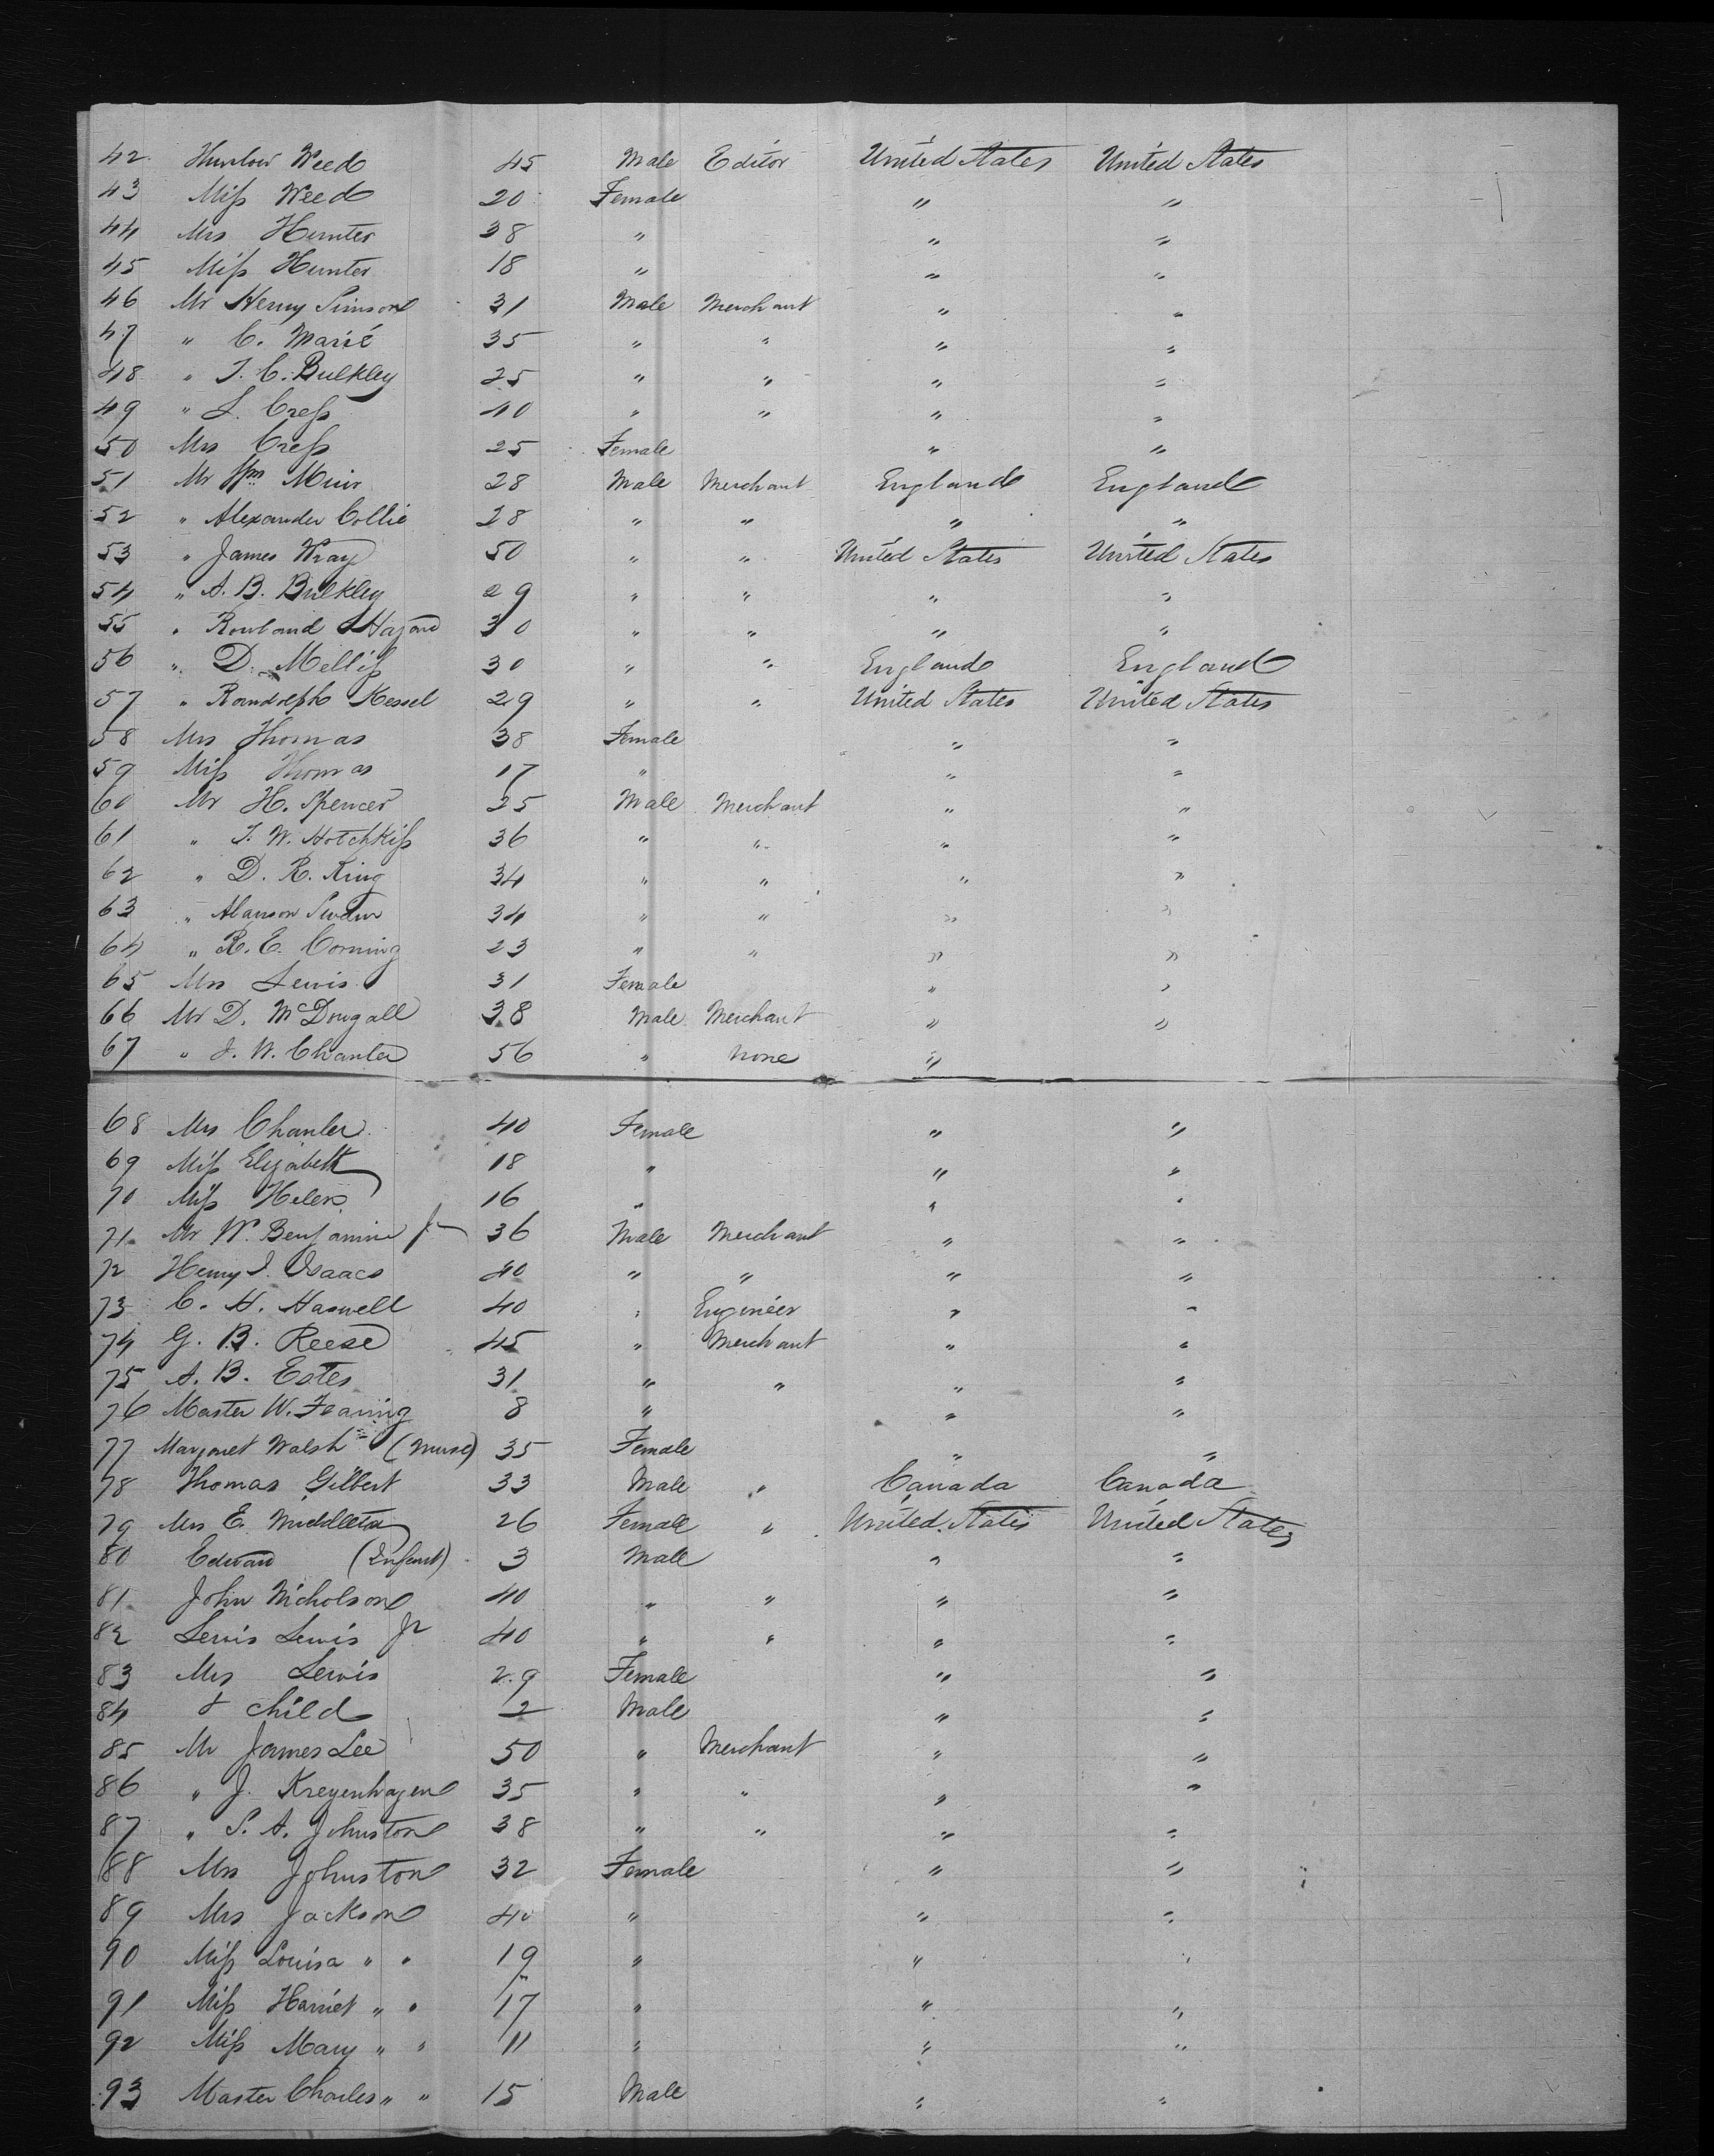 42 Hurlow Weed 45 Male Editor United States United States
43 Miss Weed 20 Female " "
44 Mrs Hunter 38 " " "
45 Miss Hunter 18 " " "
46 Mr Henry Simson 31 Male Merchant " "
47 " C. Marié 35 " " " "
48 " T. C. Bulkley 25 " " " "
49 " L. Cress 40 " " " "
50 Mrs Cress 25 Female " "
51 Mr Wm Muir 28 Male Merchant England England
52 " Alexander Collie 28 " " " "
53 " James Wray 50 " " United States United States
54 " A. B. Bulkley 29 " " " "
55 " Rowland Hazard 30 " " " "
56 " D. Melliss 30 " " England England
57 " Randolph Kessel 29 " " United States United States
58 Mrs Thomas 38 Female " "
59 Miss Thomas 17 " " "
60 Mr H. Spencer 25 Male Merchant " "
61 " T. W. Hotchkiss 36 " " " "
62 " D. R. King 34 " " " "
63 " Alanson 34 " " " "
64 " R. E. Corning 23 " " " "
65 Mrs Lewis 31 Female " "
66 Mr D. McDougall 38 Male Merchant " "
67 " J. W. Chanler 56 " none "
68 Mrs Chanler 40 Female " "
69 Miss Elizabeth 18 " " "
70 Miss Helen 16 " " "
71 Mr W. Benjamin Jr 36 Male Merchant " "
72 Henry I. Isaacs 40 " " " "
73 C. H. Haswell 40 " Engineer " "
74 G. B. Reese 45 " Merchant " "
75 A. B. Estes 31 " " " "
76 Master W. Fearing 8 " " "
77 Margaret Walsh (nurse) 35 Female " "
78 Thomas Gilbert 33 Male " Canada Canada
79 Mrs E. Middleton 26 Female " United States United States
80 Edward (Infant) 3 Male " "
81 John Nicholson 40 " " " "
82 Lewis Lewis Jr 40 " " " "
83 Mrs Lewis 29 Female " "
84 & child 2 Male " "
85 Mr James Lee 50 " Merchant " "
86 " J. Kreyenhagen 35 " " " "
87 " S. A. Johnston 38 " " " "
88 Mrs Johnston 32 Female " "
89 Mrs Jackson 40 " " "
90 Miss Louisa " " 19 " " "
91 Miss Harriet " " 17 " " "
92 Miss Mary " " 11 " " "
93 Master Charles " " 15 Male " "